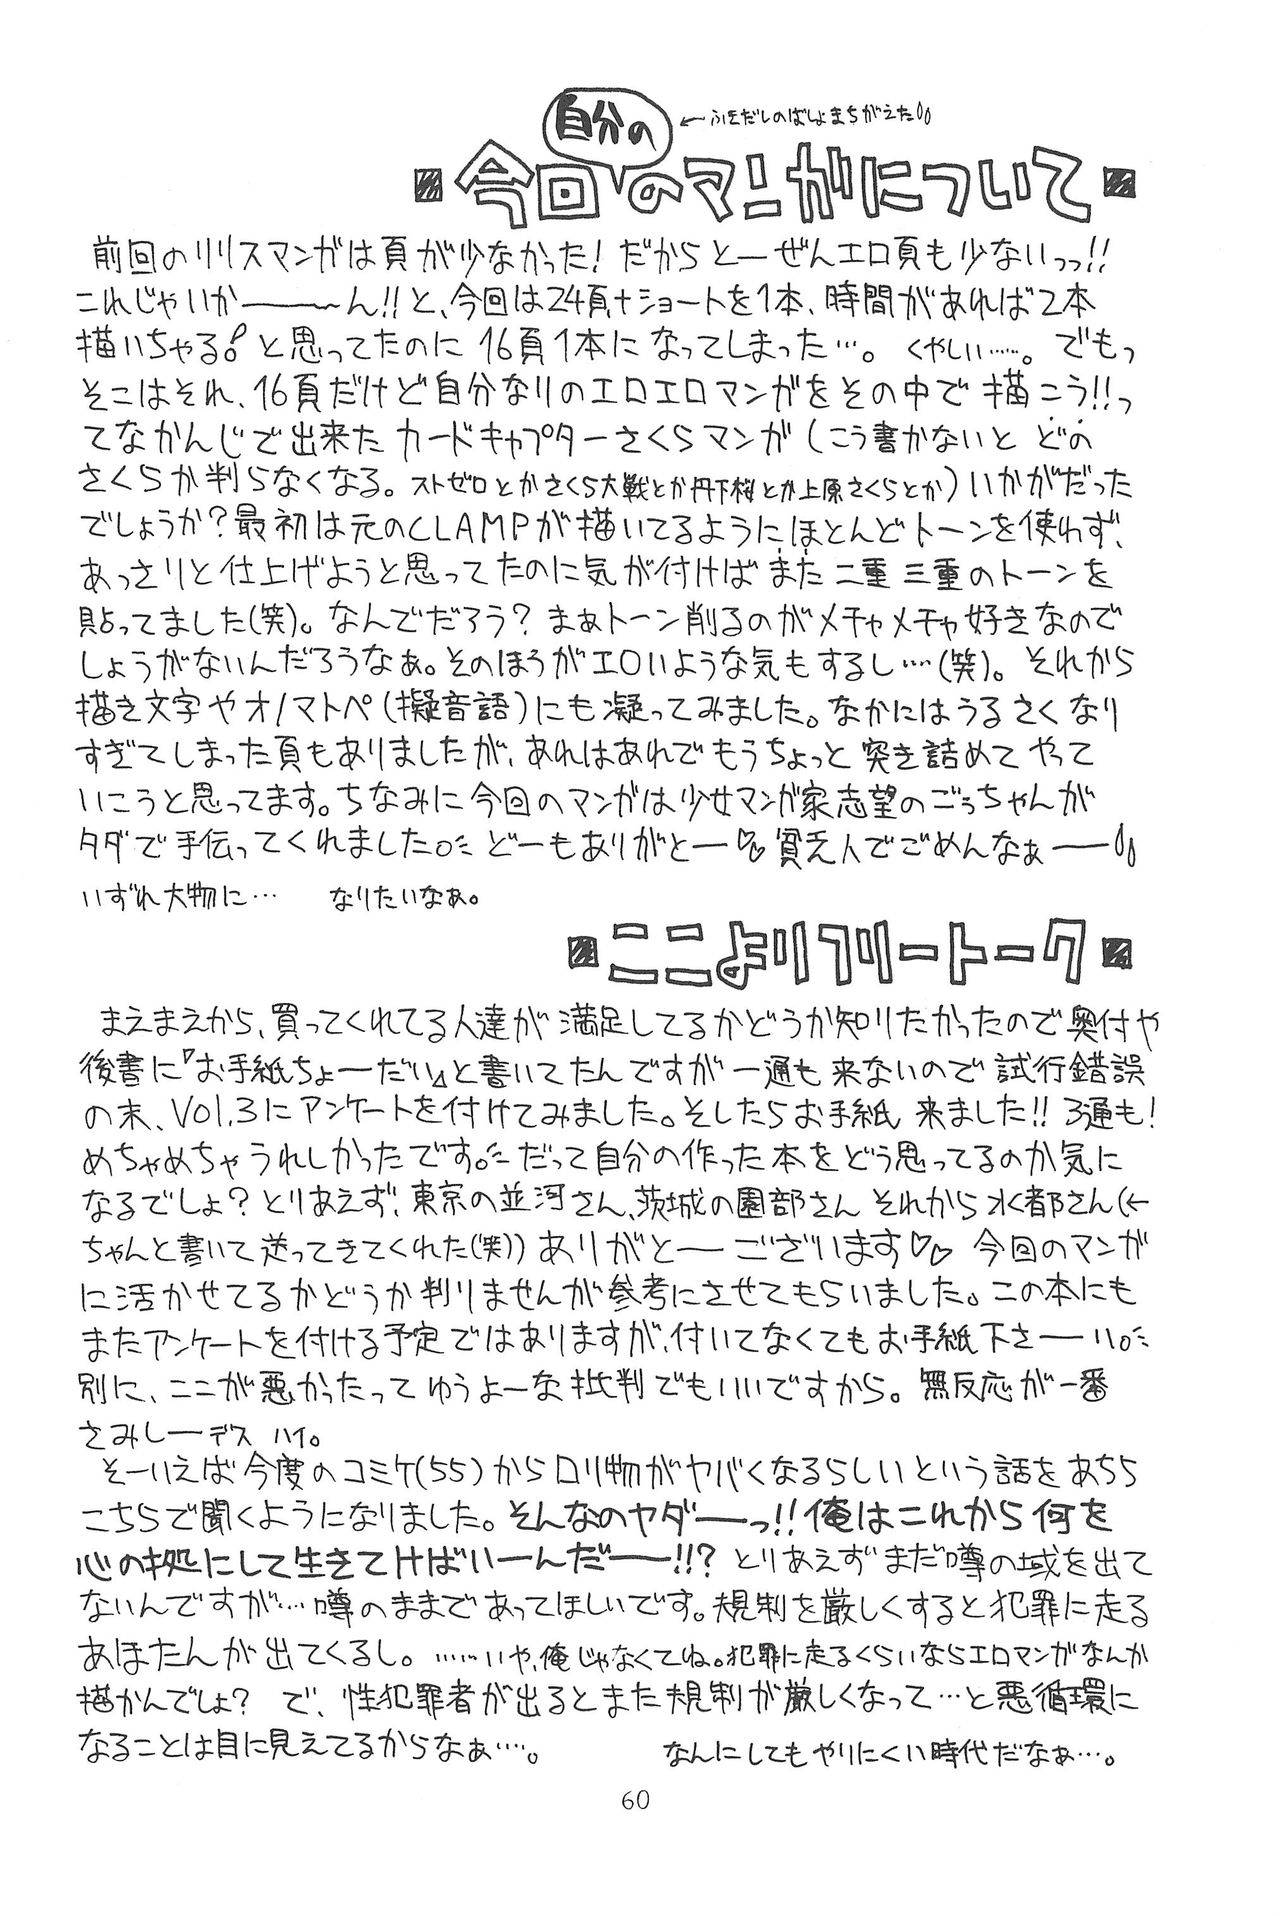 自分の
←ふきだしのばしょまちがえた
今回のマンガについて
前回のリリスマンガは頁が少なかった!だからとーぜんエロ頁も少ないっっ!!
これじゃいか――〜ん!!と、今回は24頁+ショートを1本、時間があれば2本
描いちゃる!と思ってたのに16頁1本になってしまった…。くやしい……。でもっ
そこはそれ、16頁だけど自分なりのエロエロマンガをその中で描こう!!っ
てなかんじで出来たカードキャプターさくらマンガ(こう書かないとどの
さくらか判らなくなる。ストゼロとかさくら大戦とか丹下桜とか上原さくらとか)いかがだった
でしょうか?最初は元のCLAMPが描いてるようにほとんどトーンを使わず、
あっさりと仕上げようと思ってたのに気が付けばまた二重三重のトーンを
貼ってました(笑)。なんでだろう?まぁトーン削るのがメチャメチャ好きなので
しょうがないんだろうなぁ。そのほうがエロいような気もするし…(笑)。それから
描き文字やオノマトペ(擬音語)にも凝ってみました。なかにはうるさくなり
すぎてしまった頁もありましたが、あれはあれでもうちょっと突き詰めてやって
いこうと思ってます。ちなみに今回のマンガは少女マンガ家志望のごぅちゃんが
タダで手伝ってくれました。どーもありがとー♡♡貧乏人でごめんなぁ――
いずれ大物に… なりたいなぁ。
ここよりフリートーク
まえまえから、買ってくれてる人達が満足してるかどうか知りたかったので奥付や
後書に『お手紙ちょーだい』と書いてたんですが一通も来ないので試行錯誤
の末、Vol.3にアンケートを付けてみました。そしたらお手紙来ました!!3通も!
めちゃめちゃうれしかったです。だって自分の作った本をどう思ってるのか気に
なるでしょ?とりあえず、東京の並河さん、茨城の園部さんそれから水都さん(←
ちゃんと書いて送ってきてくれた(笑))ありがとーございます♡♡今回のマンガ
に活かせてるかどうか判りませんが参考にさせてもらいました。この本にも
またアンケートを付ける予定ではありますが、付いてなくてもお手紙下さーい。
別に、ここが悪かったってゆうよーな批判でもいいですから。無反応が一番
さみしーデス ハイ。
そーいえば今度のコミケ(55)からロリ物がヤバくなるらしいという話をあちら
こちらで聞くようになりました。そんなのヤダーっ!!俺はこれから何を
心の拠処にして生きてけばいーんだ―!!?とりあえずまだ噂の域を出て
ないんですが…噂のままであってほしいです。規制を厳しくすると犯罪に走る
あほたんが出てくるし。……いや、俺じゃなくてね。犯罪に走るくらいならエロマンガなんか
描かんでしょ? で、性犯罪者が出るとまた規制が厳しくなって…と悪循環に
なることは目に見えてるからなぁ…。 なんにしてもやりにくい時代だなぁ…。
60